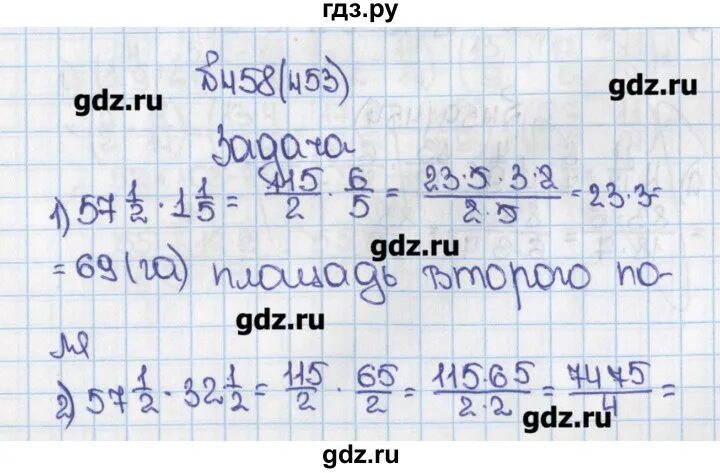 гдз.ру
№458(453)
gdz.ru
gdz.ru
Задача
1) 57 1/2 · 1 1/5 = 115/2 · 6/5 = 23·5·3·2/2·5 = 23·3=
gdz.ru
= 69 (га) площадь второго по-
gdz.ru
ля
2) 57 1/2 · 32 1/2 = 115/2 · 65/2 = 115·65/2·2 = 7475/4 =
gdz.ru
gdz.ru